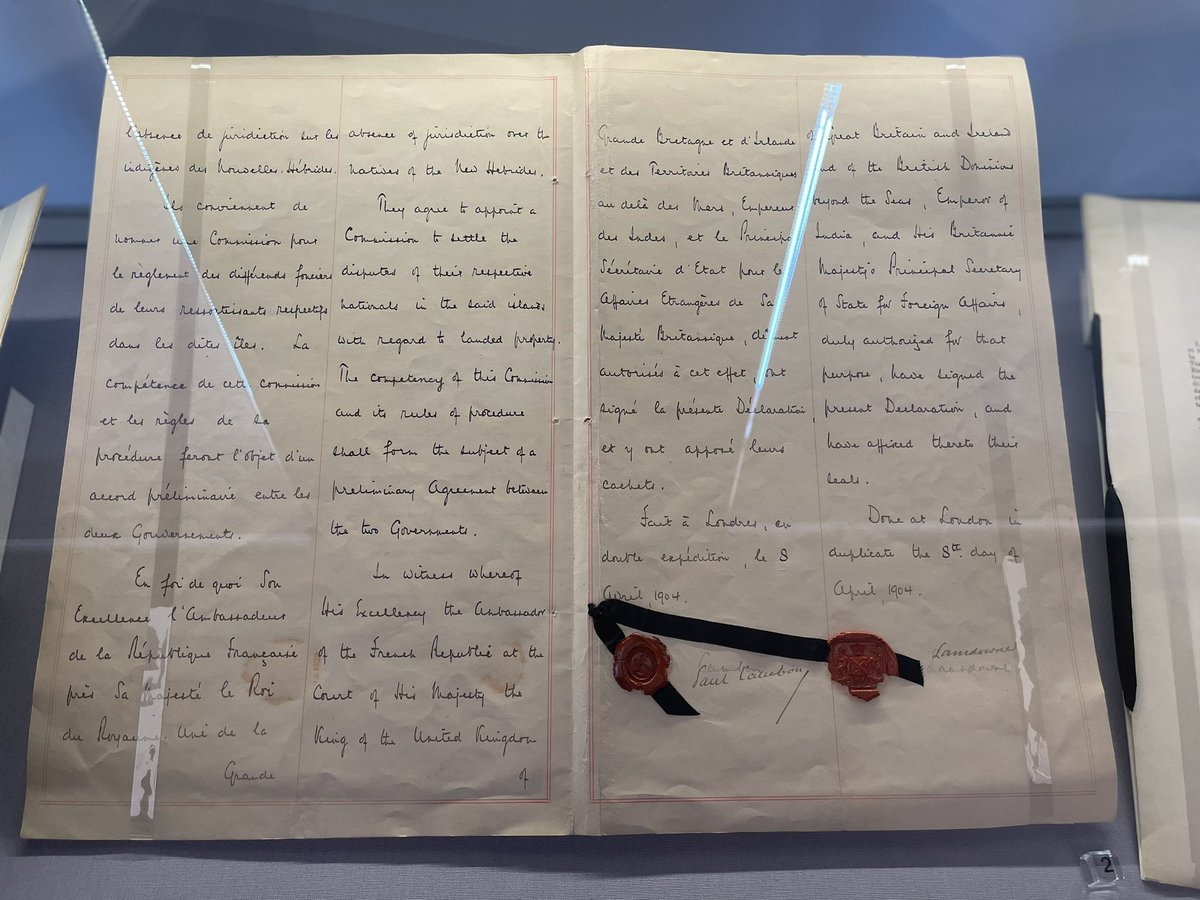 l'absence de juridiction sur les
indigènes des Nouvelles-Hébrides.
Ils conviennent de
nommer une Commission pour
le règlement des différends fonciers
de leurs ressortissants respectifs
dans les dites îles. La
compétence de cette commission
et les règles de sa
procédure feront l'objet d'un
accord préliminaire entre les
deux Gouvernements.
En foi de quoi Son
Excellence l'Ambassadeur
de la République Française
près Sa Majesté le Roi
du Royaume-Uni de la
Grande
absence of jurisdiction over the
natives of the New Hebrides.
They agree to appoint a
Commission to settle the
disputes of their respective
nationals in the said islands
with regard to landed property.
The competency of this Commission
and its rules of procedure
shall form the subject of a
preliminary Agreement between
the two Governments.
In witness whereof
His Excellency the Ambassador
of the French Republic at the
Court of His Majesty the
King of the United Kingdom
of
Grande Bretagne et d'Irlande
et des Territoires Britanniques
au delà des Mers, Empereur
des Indes, et le Principal
Sécrétaire d'Etat pour les
Affaires Etrangères de Sa
Majesté Britannique, dûment
autorisés à cet effet, ont
signé la présente Déclaration
et y ont apposé leurs
cachets.
Fait à Londres, en
double expédition, le 8
Avril, 1904.
Paul Cambon
of Great Britain and Ireland
and of the British Dominions
beyond the Seas, Emperor of
India, and His Britannic
Majesty's Principal Secretary
of State for Foreign Affairs,
duly authorized for that
purpose, have signed the
present Declaration, and
have affixed thereto their
seals.
Done at London in
duplicate the 8th day of
April, 1904.
Lansdowne
2